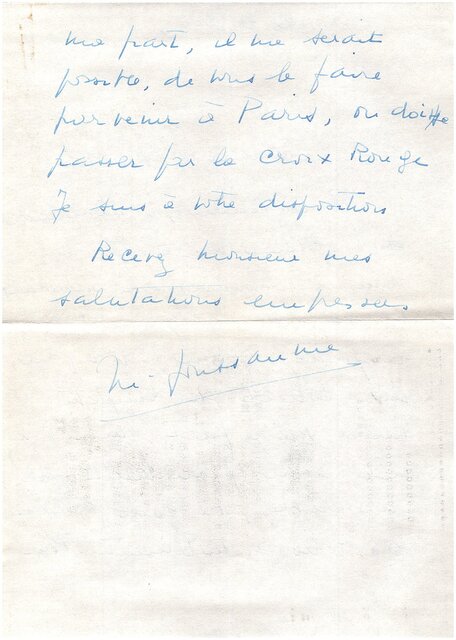 ma part, il me serait
possible, de vous le faire
parvenir à Paris, ou dois-je
passer par la Croix Rouge
Je suis à votre disposition
Recevez monsieur mes
salutations empressées.